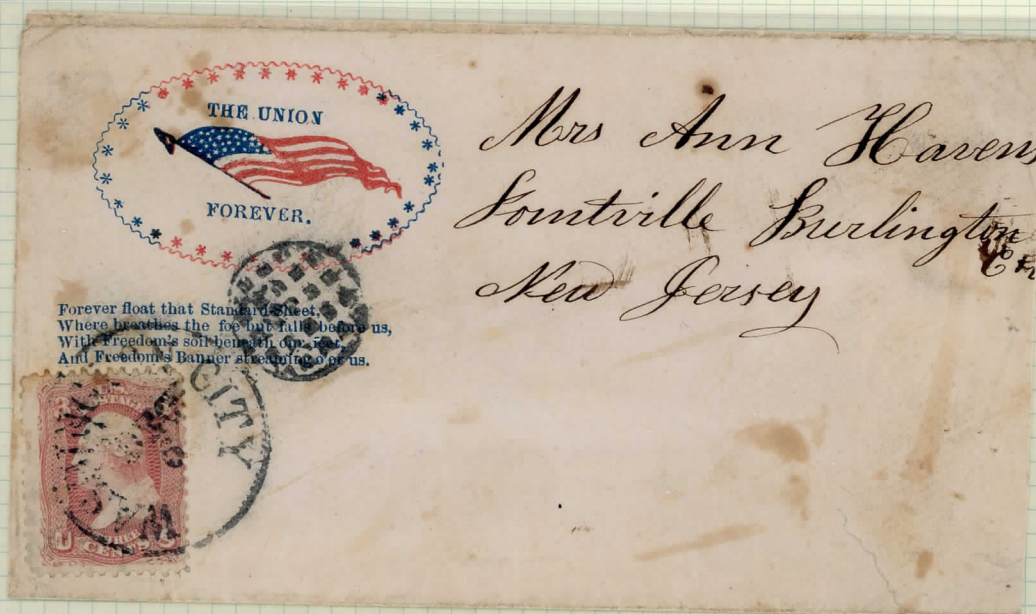 THE UNION
FOREVER.
Forever float that Standard Sheet,
Where breathes the foe but falls before us,
With Freedom's soil beneath our feet,
And Freedom's Banner streaming o'er us.
Mrs Ann Havens
Lomtville Burlington
Co
New Jersey
CITY
U.S.
POSTAGE
THREE
CENTS